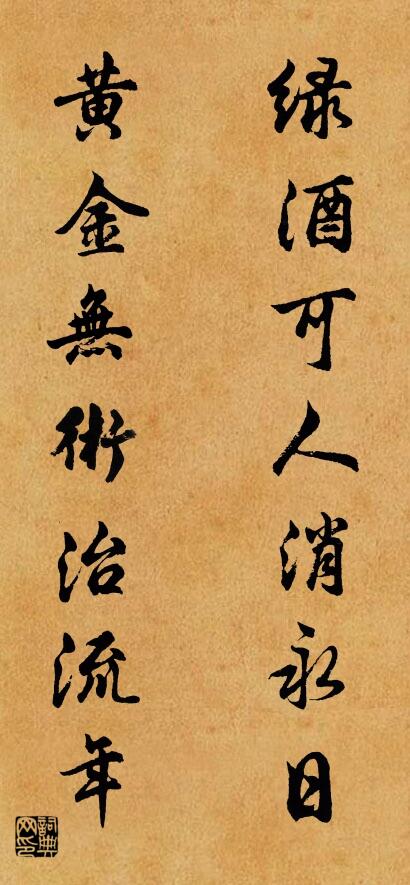 緑酒可人消永日
黄金無術治流年
詞典网印